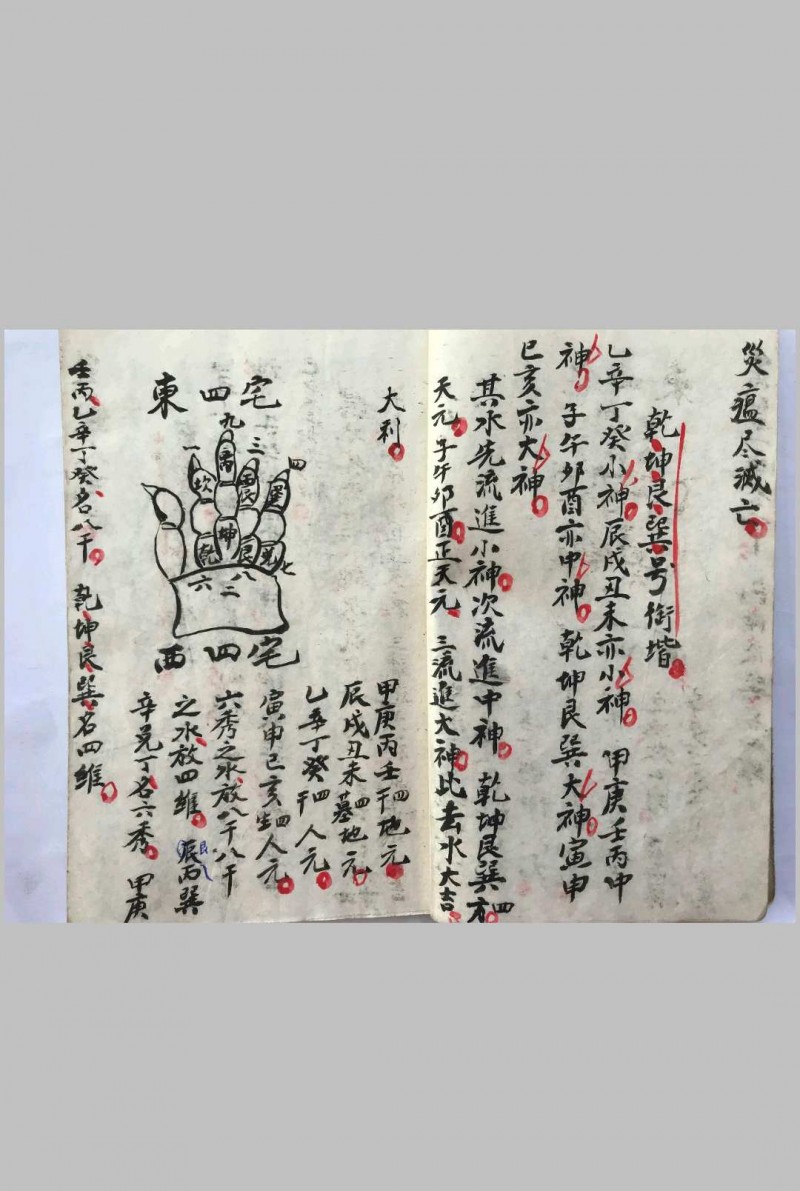 災瘟尽滅亡
乾坤艮巽号衔堦
乙辛丁癸小神辰戌丑未亦小神 甲庚壬丙中
神 子午卯酉亦中神 乾坤艮巽大神寅申
巳亥亦大神
其水先流進小神次流進中神 乾坤艮巽四
天元 子午卯酉正天元 三流進大神此去水大吉
大利
東四宅
九
一 三
四
離
坎 震 巽
乾 坤 艮 兑
六 二 八 七
西四宅
甲庚丙壬四干地元
辰戌丑未四墓地元
乙辛丁癸四干人元
寅申巳亥四生人元
六秀之水放八干八干
之水放四維 辰丙巽
艮
辛兑丁名六秀 甲庚
壬丙乙辛丁癸名八干 乾坤艮巽名四維